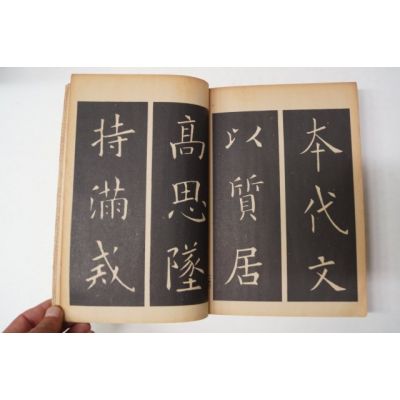 本代文
以質居
高思墜
持滿戒